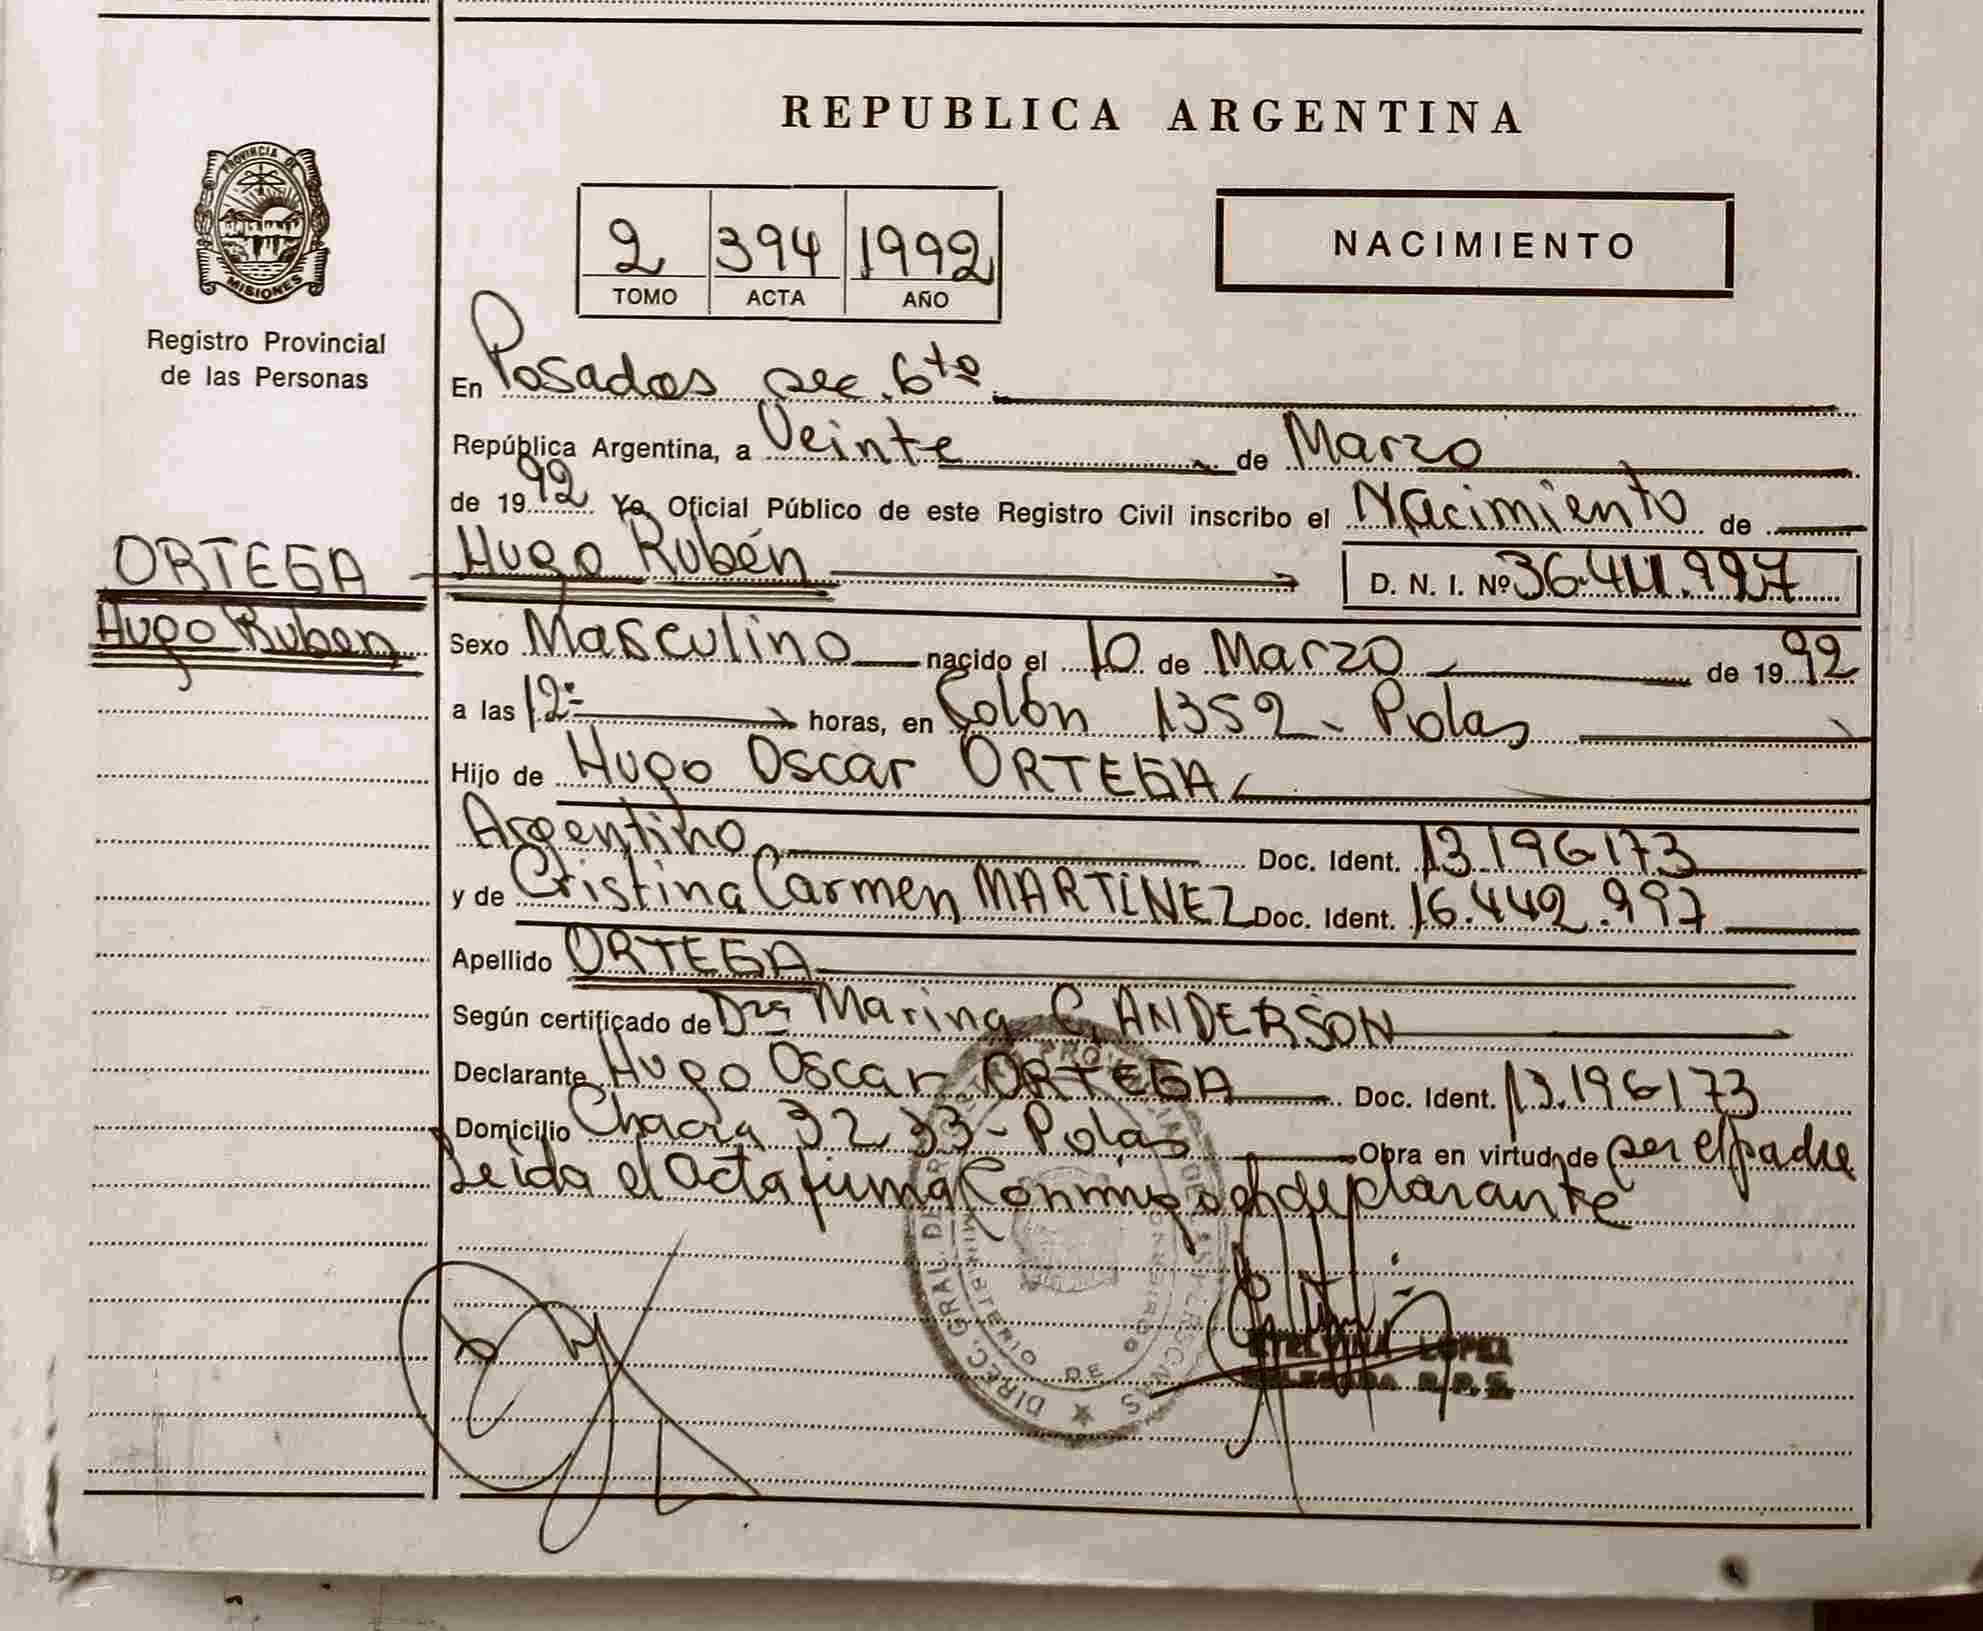 REPUBLICA ARGENTINA
PROVINCIA DE
MISIONES
Registro Provincial
de las Personas
2 394 1992
TOMO ACTA AÑO
NACIMIENTO
En Posadas sec. 6ta
República Argentina, a Veinte de Marzo
de 1992 Yo, Oficial Público de este Registro Civil inscribo el Nacimiento de
ORTEGA
Hugo Ruben
Hugo Rubén
D. N. I. Nº
Sexo Masculino nacido el 10 de Marzo de 1992
a las 12 horas, en Colón 1352 - Pdas
Hijo de Hugo Oscar ORTEGA
Argentino Doc. Ident. 13.196173
y de Cristina Carmen MARTINEZ Doc. Ident. 16.442.997
Apellido ORTEGA
Según certificado de Dra Marina C. ANDERSON
Declarante Hugo Oscar ORTEGA Doc. Ident. 13.196173
Domicilio Chacra 32 33 - Pdas Obra en virtud de ser el padre
Leida el Acta firma Conmigo el declarante
DIREC. GRAL. DE
MINISTERIO DE GOBIERNO
ETELVINA LOPEZ
DELEGADA R.P.S.